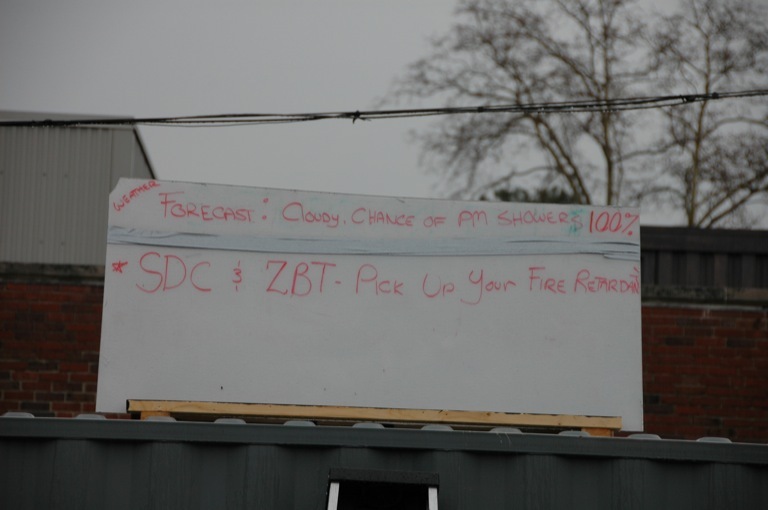 WEATHER FORECAST: CLOUDY. CHANCE OF PM SHOWERS 100%
* SDC & ZBT - PICK UP YOUR FIRE RETARDANT